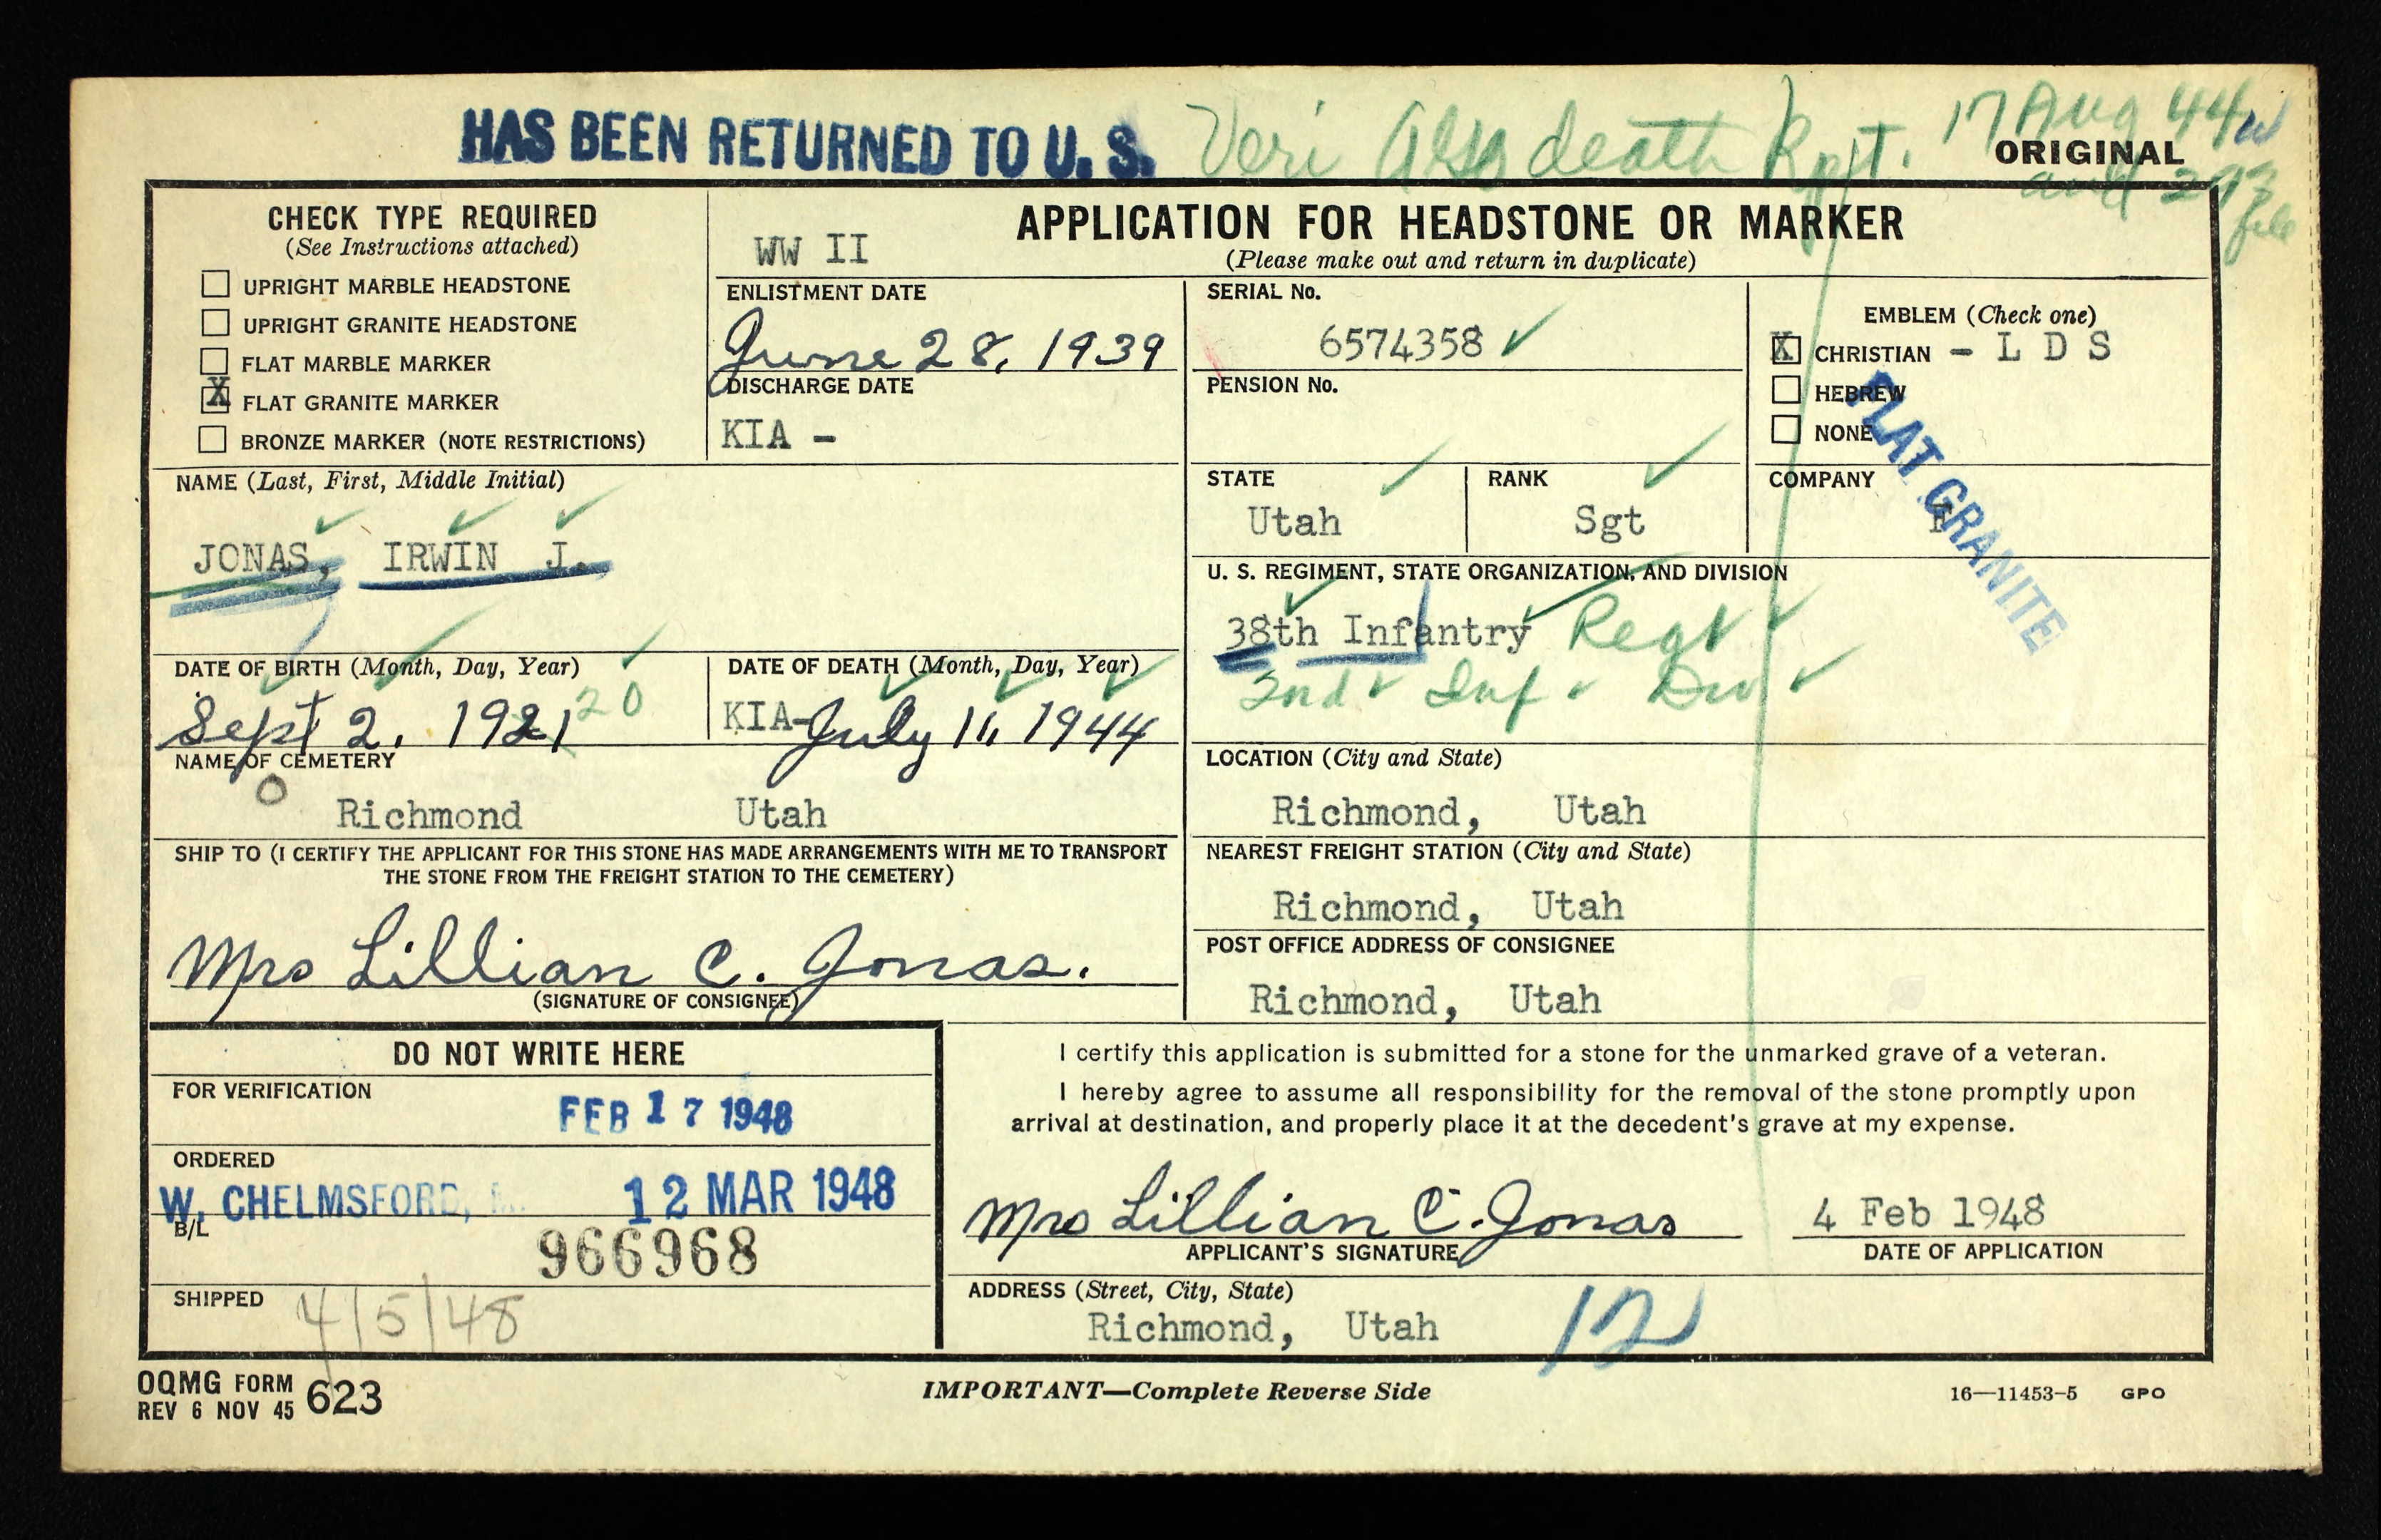 HAS BEEN RETURNED TO U. S. Veri death Rpt. 17 Aug 44
ORIGINAL
CHECK TYPE REQUIRED
(See Instructions attached)
UPRIGHT MARBLE HEADSTONE
UPRIGHT GRANITE HEADSTONE
FLAT MARBLE MARKER
X FLAT GRANITE MARKER
BRONZE MARKER (NOTE RESTRICTIONS)
WW II
APPLICATION FOR HEADSTONE OR MARKER
(Please make out and return in duplicate)
ENLISTMENT DATE
June 28, 1939
DISCHARGE DATE
KIA -
SERIAL No.
6574358 ✓
PENSION No.
EMBLEM (Check one)
X CHRISTIAN - L D S
HEBREW
NONE
FLAT GRANITE
NAME (Last, First, Middle Initial)
JONAS, IRWIN J.
STATE
Utah
RANK
Sgt
COMPANY
U. S. REGIMENT, STATE ORGANIZATION, AND DIVISION
38th Infantry Regt
2nd Inf Div
DATE OF BIRTH (Month, Day, Year)
Sept 2, 1921 20
DATE OF DEATH (Month, Day, Year)
KIA-July 11, 1944
NAME OF CEMETERY
Richmond Utah
LOCATION (City and State)
Richmond, Utah
SHIP TO (I CERTIFY THE APPLICANT FOR THIS STONE HAS MADE ARRANGEMENTS WITH ME TO TRANSPORT
THE STONE FROM THE FREIGHT STATION TO THE CEMETERY)
Mrs Lillian C. Jonas.
(SIGNATURE OF CONSIGNEE)
NEAREST FREIGHT STATION (City and State)
Richmond, Utah
POST OFFICE ADDRESS OF CONSIGNEE
Richmond, Utah
DO NOT WRITE HERE
FOR VERIFICATION
FEB 17 1948
ORDERED
W. CHELMSFORD, 12 MAR 1948
B/L
966968
SHIPPED
4/5/48
I certify this application is submitted for a stone for the unmarked grave of a veteran.
I hereby agree to assume all responsibility for the removal of the stone promptly upon
arrival at destination, and properly place it at the decedent's grave at my expense.
Mrs Lillian C. Jonas
APPLICANT'S SIGNATURE
4 Feb 1948
DATE OF APPLICATION
ADDRESS (Street, City, State)
Richmond, Utah
12
OQMG FORM 623
REV 6 NOV 45
IMPORTANT—Complete Reverse Side
16—11453-5 GPO